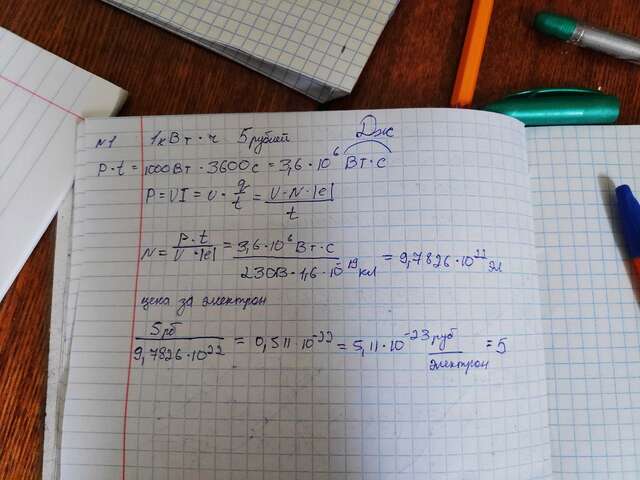 N1 1кВт·ч 5рублей Дж
P·t = 1000Вт·3600с = 3,6·10⁶ Вт·с
P = UI = U·q/t = U·N·|e|/t
N = P·t/U·|e| = 3,6·10⁶Вт·с/230В·1,6·10⁻¹⁹кл = 9,7826·10²² эл
цена за электрон
5рб/9,7826·10²² = 0,511·10⁻²² = 5,11·10⁻²³ руб/электрон = 5